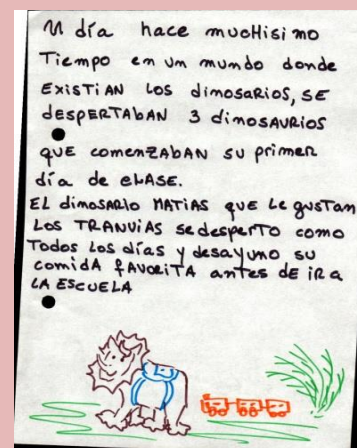 Un día hace mucHisimo
Tiempo en un mundo donde
ExisTiAN Los dimosaRios, SE
desPERTAbAN 3 dimosAURios
QUE comenzAbAN su primer
día de cLASE.
EL dimosARio MATiAS que Le gusTan
Los TRANVias sedesperTo como
Todos Los días y desayuno su
comidA fAVoRiTA antes dE iR a
LA ESCUELA